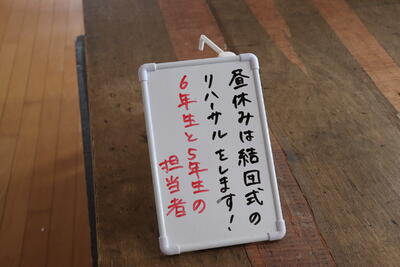 昼休みは結団式の
リハーサルをします!
6年生と5年生の
担当者